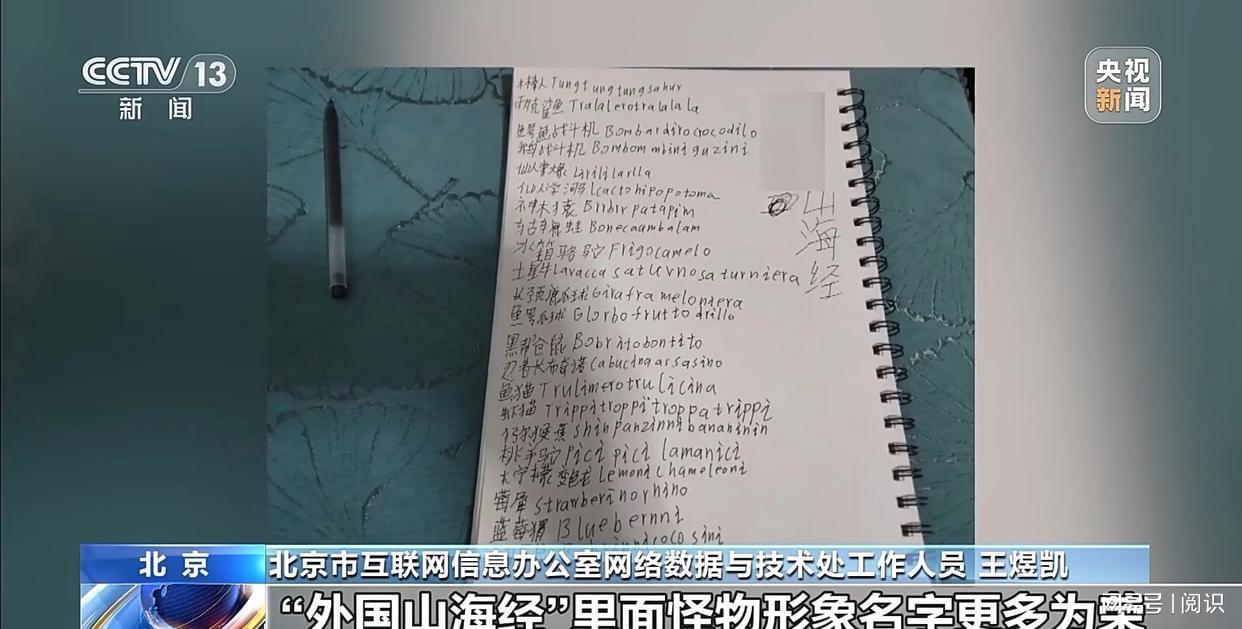 CCTV 13
新闻
央视
新闻
木棒人 Tungtungtungsahur
耐克鲨鱼 Tralalerotralalala
鳄鱼战斗机 Bombardirocrocodilo
鹅战斗机 Bombombiniguzini
仙人掌象 Lirililarlla
仙人掌河马 Lcactohipopotoma
Brrbrrpatapim
蛙 Bonecaambalam
冰箱骆驼 Frigocamelo
土星牛 Lavaccasaturnosaturniera
长颈鹿瓜球 Giraframeloniera
鱼号瓜球 Glorbofruttodrillo
黑帮仓鼠 Bobritobontito
忍者卡布奇诺 Cabucinaassasino
鱼猫 Trulimerotrulicina
虾猫 Trippitroppitroppatrippi
猴蕉 Shinpanzinnibananinin
Picipici lamanici
变色龙 Lemonichameleoni
莓犀 Strawberinorhino
蓝莓猬 Bluebernni
山
海
经
北京
北京市互联网信息办公室网络数据与技术处工作人员 王煜凯
“外国山海经”里面怪物形象名字更多为
网易号 | 阅识